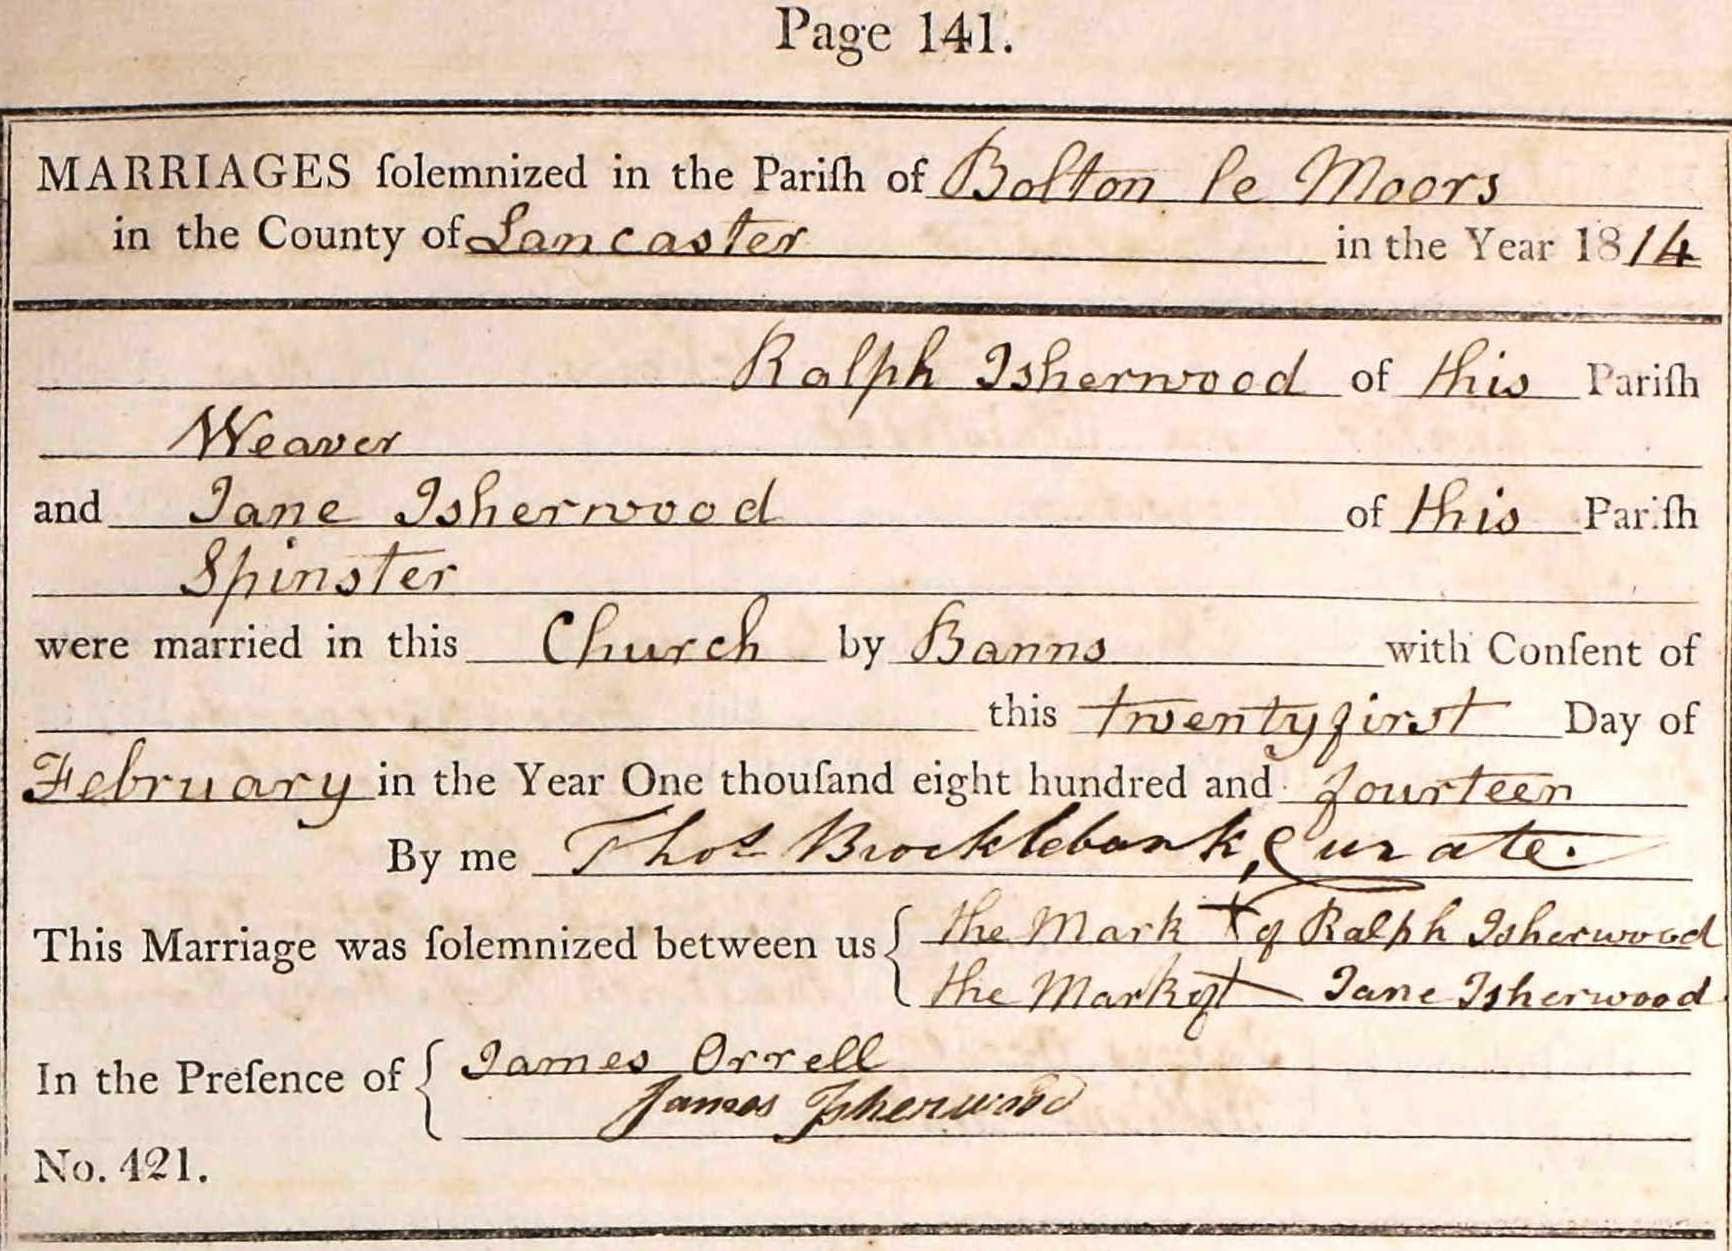 Page 141.
MARRIAGES ſolemnized in the Pariſh of Bolton le Moors
in the County of Lancaster in the Year 1814
Ralph Isherwood of this Pariſh
Weaver
and Jane Isherwood of this Pariſh
Spinster
were married in this Church by Banns with Conſent of
this twentyfirst Day of
February in the Year One thouſand eight hundred and fourteen
By me Thos Brocklebank, Curate.
This Marriage was ſolemnized between us { the Mark + of Ralph Isherwood
the Mark of + Jane Isherwood
In the Preſence of { James Orrell
James Isherwood
No. 421.